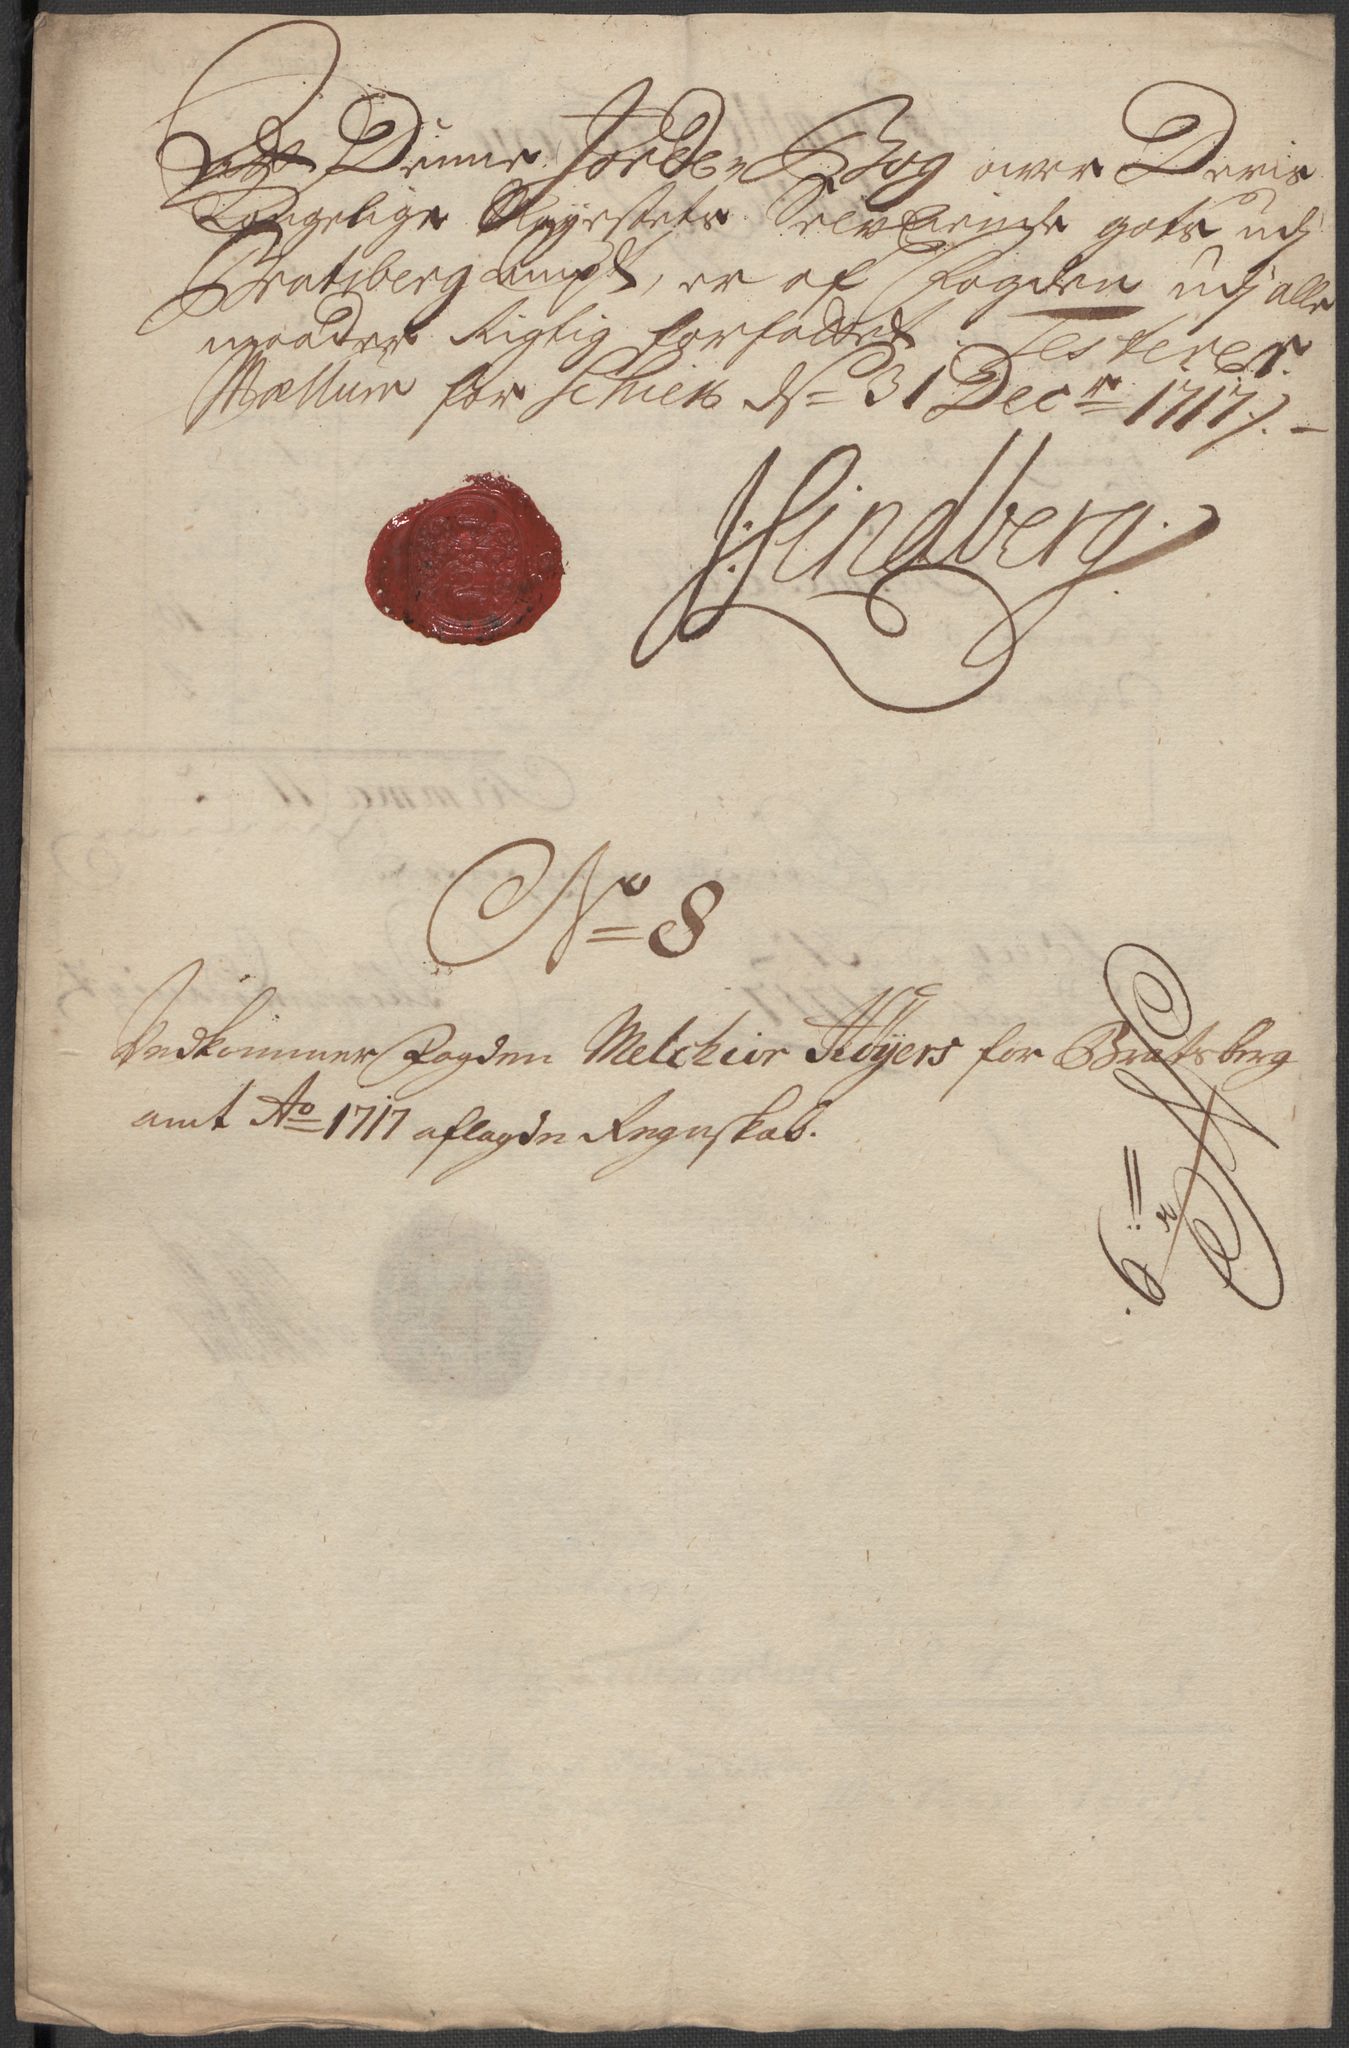 At Denne Jorde Bog over Deris
Kongelige Mayestets Selv Eiende gots udj
Bratsberg ampt, er af Fogden udj alle
maader rigtig forfattet Testerer.
Mællum for Schien d. 31 Decr 1717.
J: Lindberg.
No 8
Vedkommer Fogden Melchior Høyers for Bratsberg
amt Ao 1717 aflagde Regnskab.